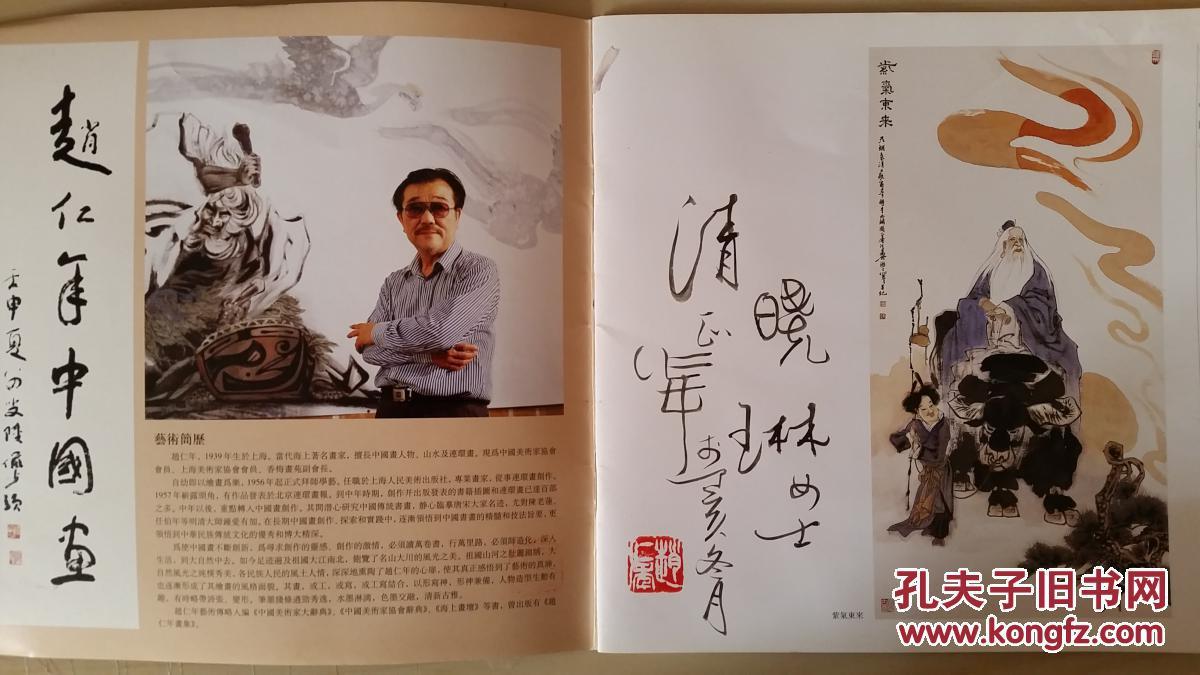 趙仁年中國畫
壬申夏
藝術簡歷
趙仁年,1939年生於上海。當代海上著名畫家,擅長中國畫人物、山水及連環畫。現爲中國美術家協會
會員、上海美術家協會會員、香梅畫苑副會長。
自幼即以繪畫爲樂,1956年起正式拜師學藝。任職於上海人民美術出版社,專業畫家,從事連環畫創作。
1957年嶄露頭角,有作品發表於北京連環畫報。到中年時期,創作并出版發表的書籍插圖和連環畫已達百部
之多。中年以後,重點轉入中國畫創作。其間潛心研究中國傳統書畫,静心臨摹唐宋大家名迹,尤對陳老蓮、
任伯年等明清大師鍾愛有加。在長期中國畫創作、探索和實踐中,逐漸領悟到中國書畫的精髓和技法旨要,更
領悟到中華民族傳統文化的優秀和博大精深。
爲使中國畫不斷創新,爲尋求創作的靈感、創作的激情,必須讀萬卷書,行萬里路,必須師造化,深入
生活,到大自然中去。如今足迹遍及祖國大江南北,飽覽了名山大川的風光之美。祖國山河之壯麗錦綉,大
自然風光之純樸秀美,各民族人民的風土人情,深深地熏陶了趙仁年的心扉,使其真正感悟到了藝術的真諦,
也逐漸形成了其繪畫的風格面貌。其畫,或工,或寫,或工寫結合,以形寫神,形神兼備,人物造型生動有
趣,有時略帶誇張、變形,筆墨綫條遒勁秀逸,水墨淋漓,色墨交融,清新古雅。
趙仁年藝術傳略入編《中國美術家大辭典》、《中國美術家協會辭典》、《海上畫壇》等書,曾出版有《趙
仁年畫集》。
曉琳女士
清正
仁年
於丁亥冬月
紫氣東来
紫氣東來
孔夫子旧书网
www.kongfz.com